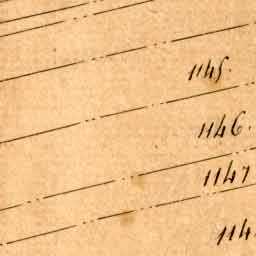 1145.
1146.
1147
114